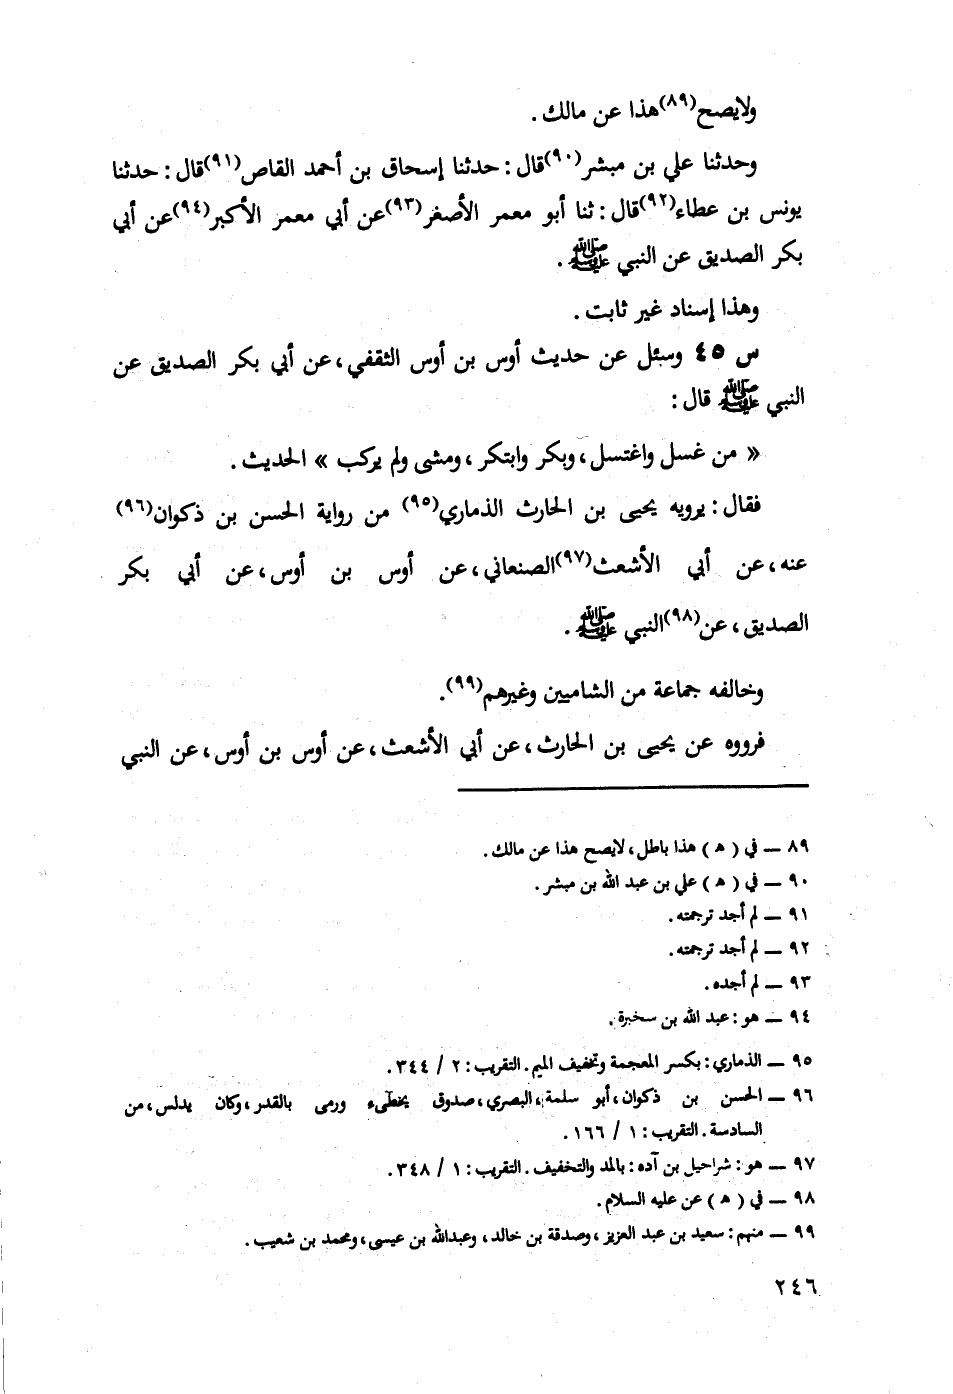 ولايصح(٨٩)هذا عن مالك .
وحدثنا علي بن مبشر(٩٠)قال : حدثنا إسحاق بن أحمد القاص(٩١)قال : حدثنا
يونس بن عطاء(٩٢)قال : ثنا أبو معمر الأصغر(٩٣)عن أبي معمر الأكبر(٩٤)عن أبي
بكر الصديق عن النبي ﷺ .
وهذا إسناد غير ثابت .
س ٤٥ وسئل عن حديث أوس بن أوس الثقفي ، عن أبي بكر الصديق عن
النبي ﷺ قال :
« من غسل واغتسل ، وبكر وابتكر ، ومشى ولم يركب » الحديث .
فقال : يرويه يحيى بن الحارث الذماري(٩٥) من رواية الحسن بن ذكوان(٩٦)
عنه ، عن أبي الأشعث(٩٧)الصنعاني ، عن أوس بن أوس ، عن أبي بكر
الصديق ، عن(٩٨)النبي ﷺ .
وخالفه جماعة من الشاميين وغيرهم(٩٩).
فرووه عن يحيى بن الحارث ، عن أبي الأشعث ، عن أوس بن أوس ، عن النبي
٨٩ — في ( هـ ) هذا باطل ، لايصح هذا عن مالك .
٩٠ — في ( هـ ) علي بن عبد الله بن مبشر .
٩١ — لم أجد ترجمته .
٩٢ — لم أجد ترجمته .
٩٣ — لم أجده .
٩٤ — هو : عبد الله بن سخبرة .
٩٥ — الذماري : بكسر المعجمة وتخفيف الميم . التقريب : ٢ / ٣٤٤ .
٩٦ — الحسن بن ذكوان ، أبو سلمة ، البصري ، صدوق يخطىء ورمى بالقدر ، وكان يدلس ، من
السادسة . التقريب : ١ / ١٦٦ .
٩٧ — هو : شراحيل بن آده : بالمد والتخفيف . التقريب : ١ / ٣٤٨ .
٩٨ — في ( هـ ) عن عليه السلام .
٩٩ — منهم : سعيد بن عبد العزيز ، وصدقة بن خالد ، وعبدالله بن عيسى ، ومحمد بن شعيب .
٢٤٦